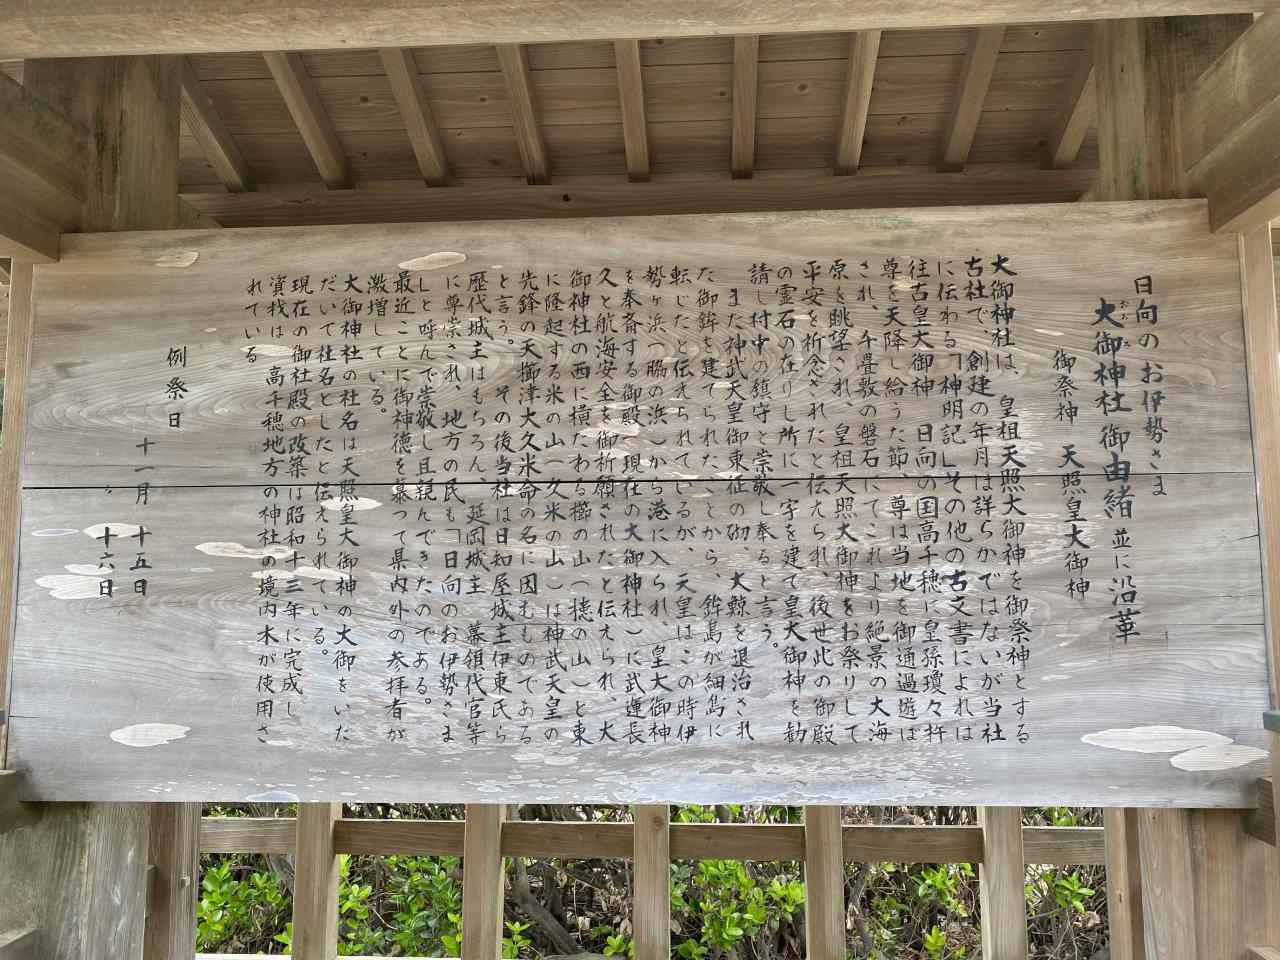 日向のお伊勢さま
大御神社御由緒並に沿革
おおみ
御祭神　天照皇大御神
大御神社は、皇祖天照大御神を御祭神とする
古社で、創建の年月は詳らかではないが当社
に伝わる「神明記」その他の古文書によれば
往古皇大御神　日向の国高千穂に皇孫瓊々杵
尊を天降し給うた節、尊は当地を御通過遊ば
され、千畳敷の磐石にてこれより絶景の大海
原を眺望され、皇祖天照大御神をお祭りして
平安を祈念されたと伝えられ、後世此の御殿
の霊石の在りし所に一宇を建て皇大御神を勧
請し村中の鎮守と崇敬し奉ると言う。
また神武天皇御東征の砌、大鯨を退治され
た御鉾を建てられたことから、鉾島が細島に
転じたと伝えられているが、天皇はこの時伊
勢ヶ浜（脇の浜）から港に入られ、皇大御神
を奉斎する御殿（現在の大御神社）に武運長
久と航海安全を御祈願されたと伝えられ、大
御神社の西に横たわる櫛の山（樒の山）と東
に隆起する米の山（久米の山）は神武天皇の
先鋒の天櫛津大久米命の名に因むものである
と言う。　その後当社は日知屋城主伊東氏ら
歴代城主はもちろん、延岡城主　幕領代官等
に尊崇され、地方の民も「日向のお伊勢さま
」と呼んで崇敬し且親んできたのである。
最近ことに御神徳を慕って県内外の参拝者が
激増している。
大御神社の社名は天照皇大御神の大御をいた
だいて社名としたと伝えられている。
現在の御社殿の改築は昭和十三年に完成し
資材は　高千穂地方の神社の境内木が使用さ
れている
例祭日　十一月　十五日
十六日